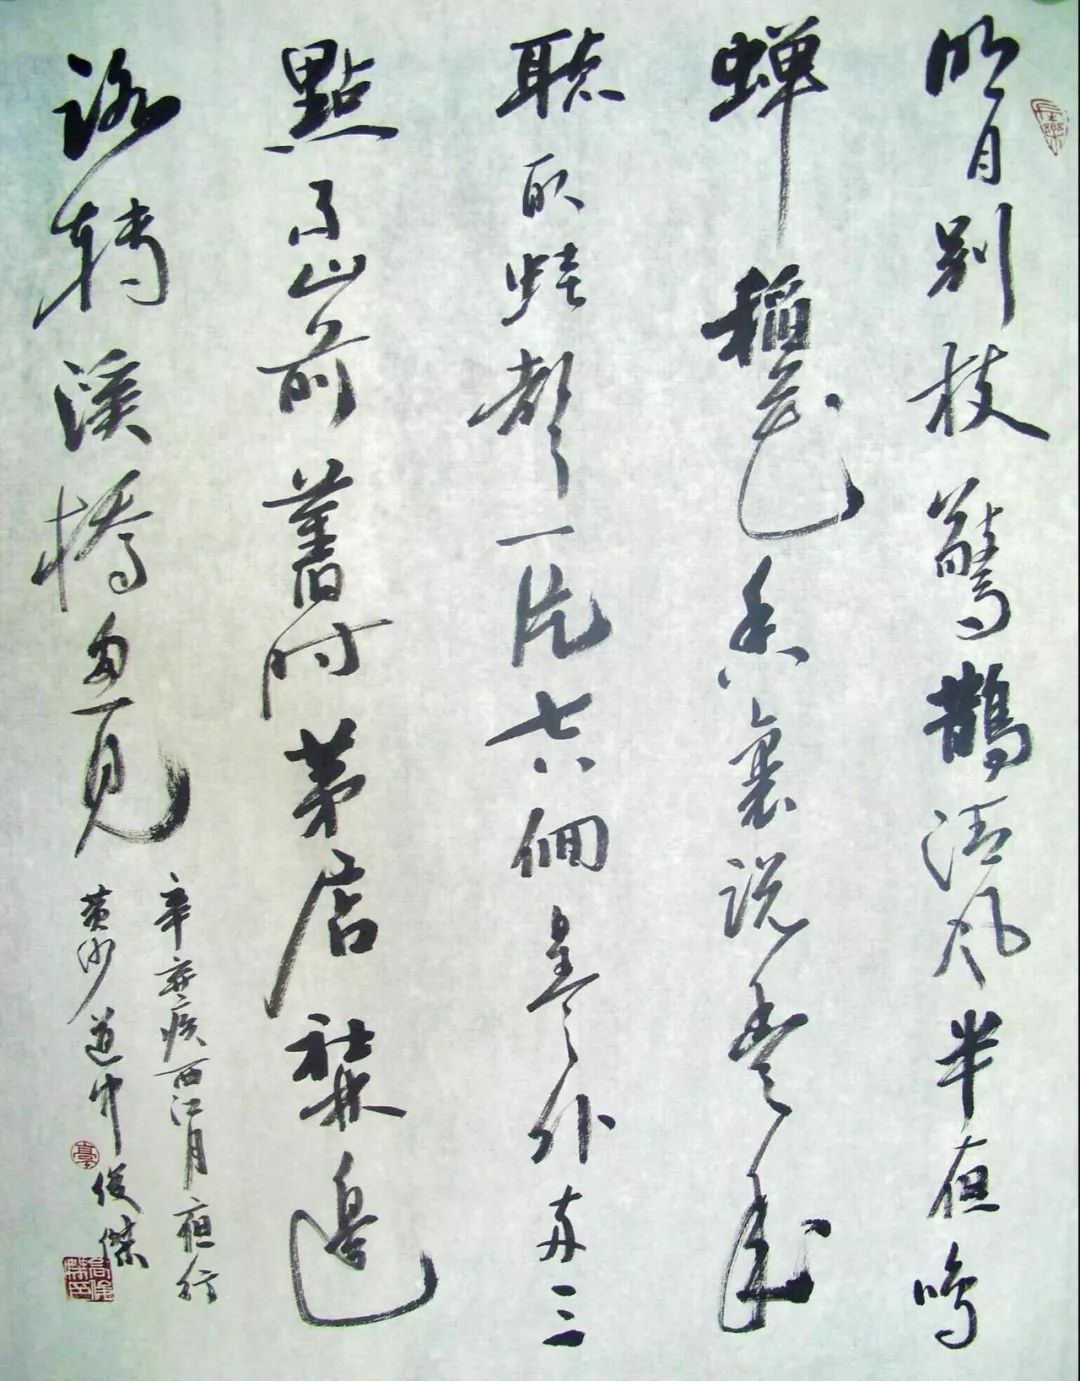 明月别枝驚鵲清風半夜鳴
蝉稻花香裏説豐年
聽取蛙聲一片七八個星天外两三
點雨山前舊時茅店社林邊
路轉溪橋忽見
辛弃疾西江月夜行
黄沙道中俊傑